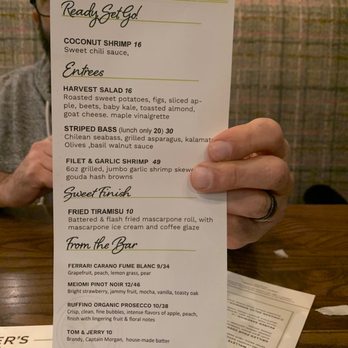 Ready Set Go!
COCONUT SHRIMP 16
Sweet chili sauce,
Entrees
HARVEST SALAD 16
Roasted sweet potatoes, figs, sliced ap-
ple, beets, baby kale, toasted almond,
goat cheese. maple vinaigrette
STRIPED BASS (lunch only 20) 30
Chilean seabass, grilled asparagus, kalamat
Olives ,basil walnut sauce
FILET & GARLIC SHRIMP 49
6oz grilled, jumbo garlic shrimp skew
gouda hash browns
Sweet Finish
FRIED TIRAMISU 10
Battered & flash fried mascarpone roll, with
mascarpone ice cream and coffee glaze
From the Bar
FERRARI CARANO FUME BLANC 9/34
Grapefruit, peach, lemon grass, pear
MEIOMI PINOT NOIR 12/46
Bright strawberry, jammy fruit, mocha, vanilla, toasty oak
RUFFINO ORGANIC PROSECCO 10/38
Crisp, clean, fine bubbles, intense flavors of apple, peach,
finish with lingering fruit & floral notes
TOM & JERRY 10
Brandy, Captain Morgan, house-made batter
ER'S